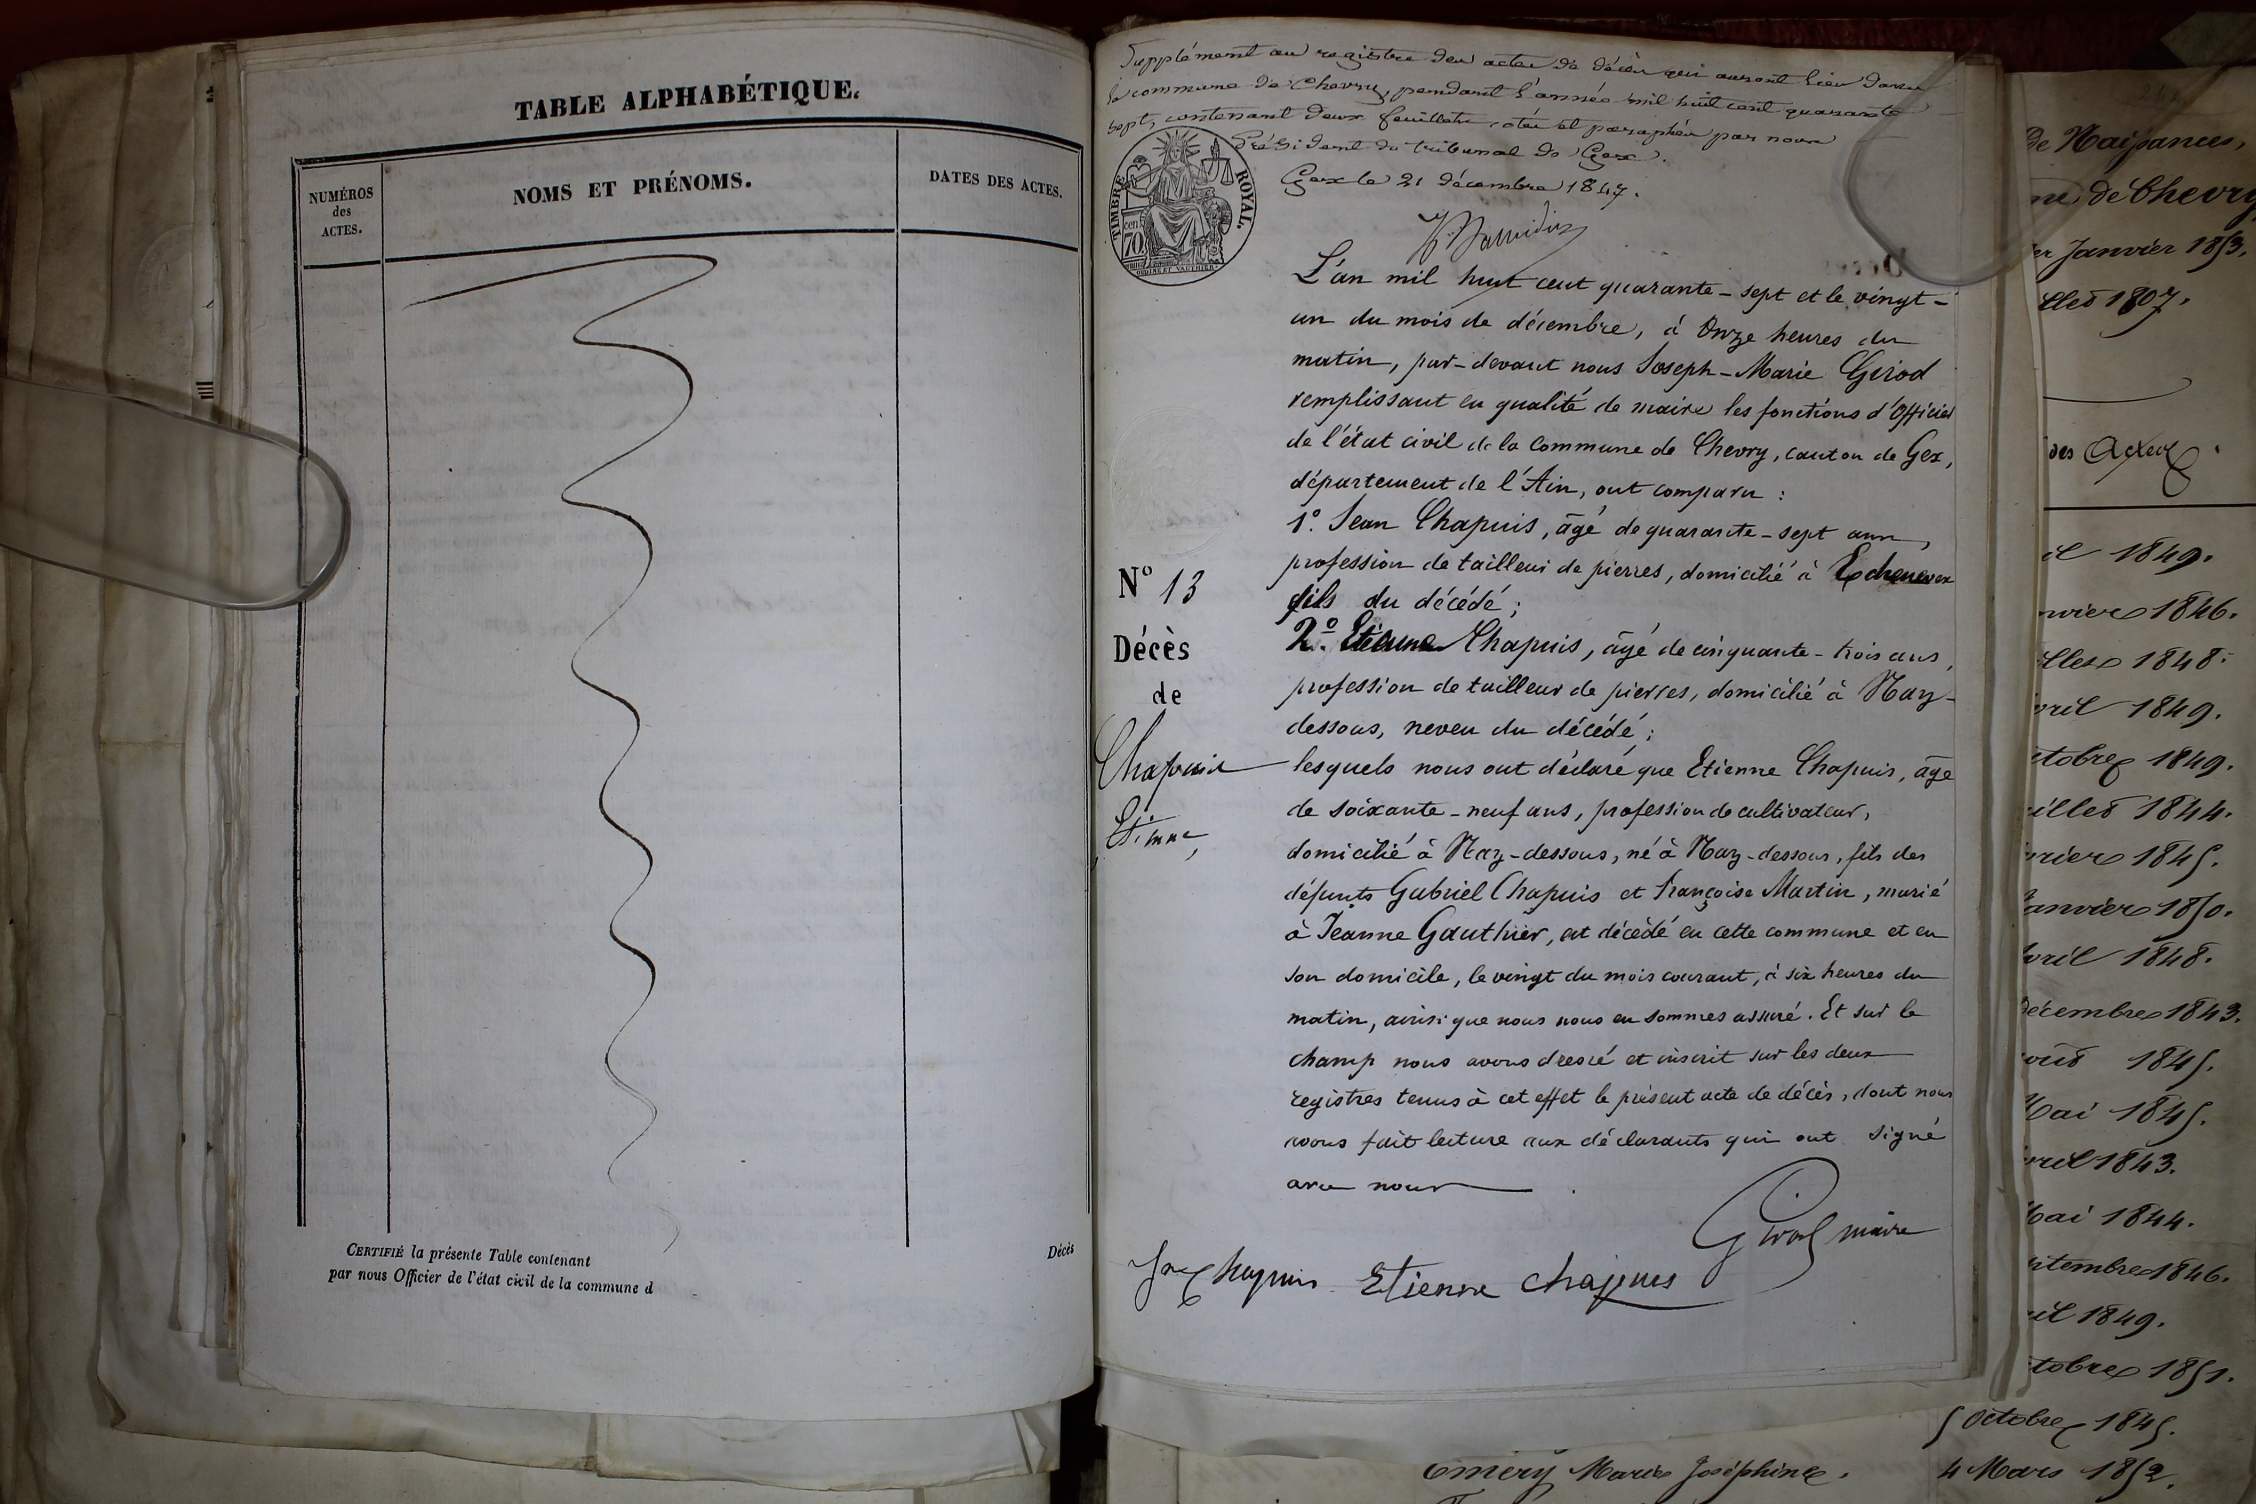 TABLE ALPHABÉTIQUE.
NUMÉROS
des
ACTES.
NOMS ET PRÉNOMS.
DATES DES ACTES.
CERTIFIÉ la présente Table contenant
par nous Officier de l'état civil de la commune d
Décès
Supplément au registre des actes de décès qui auront lieu dans
la commune de Chevry, pendant l'année mil huit cent quarante
sept, contenant deux feuillets cotés et paraphés par nous
Président du tribunal de Gex.
Gex le 21 décembre 1847.
TIMBRE ROYAL.
70 cen
L'an mil huit cent quarante-sept et le vingt-
un du mois de décembre, à Onze heures du
matin, par-devant nous Joseph-Marie Girod
remplissant en qualité de maire les fonctions d'Officier
de l'état civil de la commune de Chevry, canton de Gex,
département de l'Ain, ont comparu :
1º. Jean Chapuis, âgé de quarante-sept ans,
profession de tailleur de pierres, domicilié à Echenevex
fils du décédé ;
2º. Etienne Chapuis, âgé de cinquante-trois ans,
profession de tailleur de pierres, domicilié à Naz-
dessous, neveu du décédé ;
lesquels nous ont déclaré que Etienne Chapuis, âgé
de soixante-neuf ans, profession de cultivateur,
domicilié à Naz-dessous, né à Naz-dessous, fils des
défunts Gabriel Chapuis et françoise Martin, marié
à Jeanne Gauthier, est décédé en cette commune et en
son domicile, le vingt du mois courant, à six heures du
matin, ainsi que nous nous en sommes assuré. Et sur le
champ nous avons dressé et inscrit sur les deux
registres tenus à cet effet le présent acte de décès, dont nous
avons fait lecture aux déclarants qui ont signé
avec nous
Nº 13
Décès
de
Chapuis
Etienne
Girod maire
Jn Chapuis Etienne chapuis
de Naissances,
de Chevry
er Janvier 1853,
llet 1807.
des Actes.
il 1849.
nvier 1846.
illet 1848.
vril 1849.
ctobre 1849.
uillet 1844.
vrier 1845.
Janvier 1850.
Avril 1848.
Décembre 1843.
oût 1845.
Mai 1845.
vril 1843.
Mai 1844.
ptembre 1846.
uil 1849.
ctobre 1851.
5 Octobre 1845.
Emery Marie Joséphine. 4 Mars 1852.